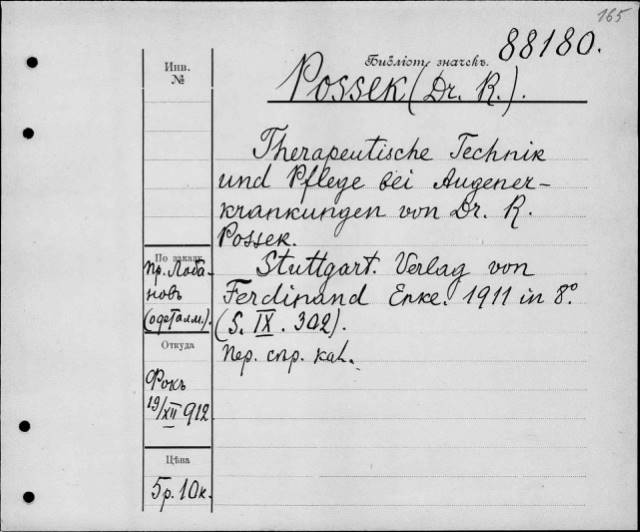 165
88180.
Библіот. значекъ.
Инв.
№
Possek (Dr. R.).
Therapeutische Technik
und Pflege bei Augener-
krankungen von Dr. R.
Possek.
Stuttgart. Verlag von
Ferdinand Enke. 1911 in 8°.
(S. IX. 302).
Пер. спр. кал.
По заказу
пр. Лоба-
новъ
(офталм.).
Откуда
Фокъ
19/XII 912
Цѣна
5 р. 10 к.